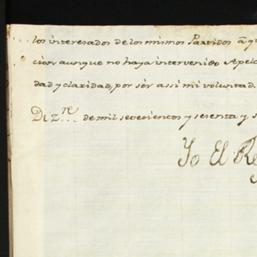 los interesados de los mismos Partidos a q
cion aunque no haya intervenido Apela
dad y claridad, por sér assi mi voluntad.
Diz.re de mil setecientos y setenta y s
Yo El Re